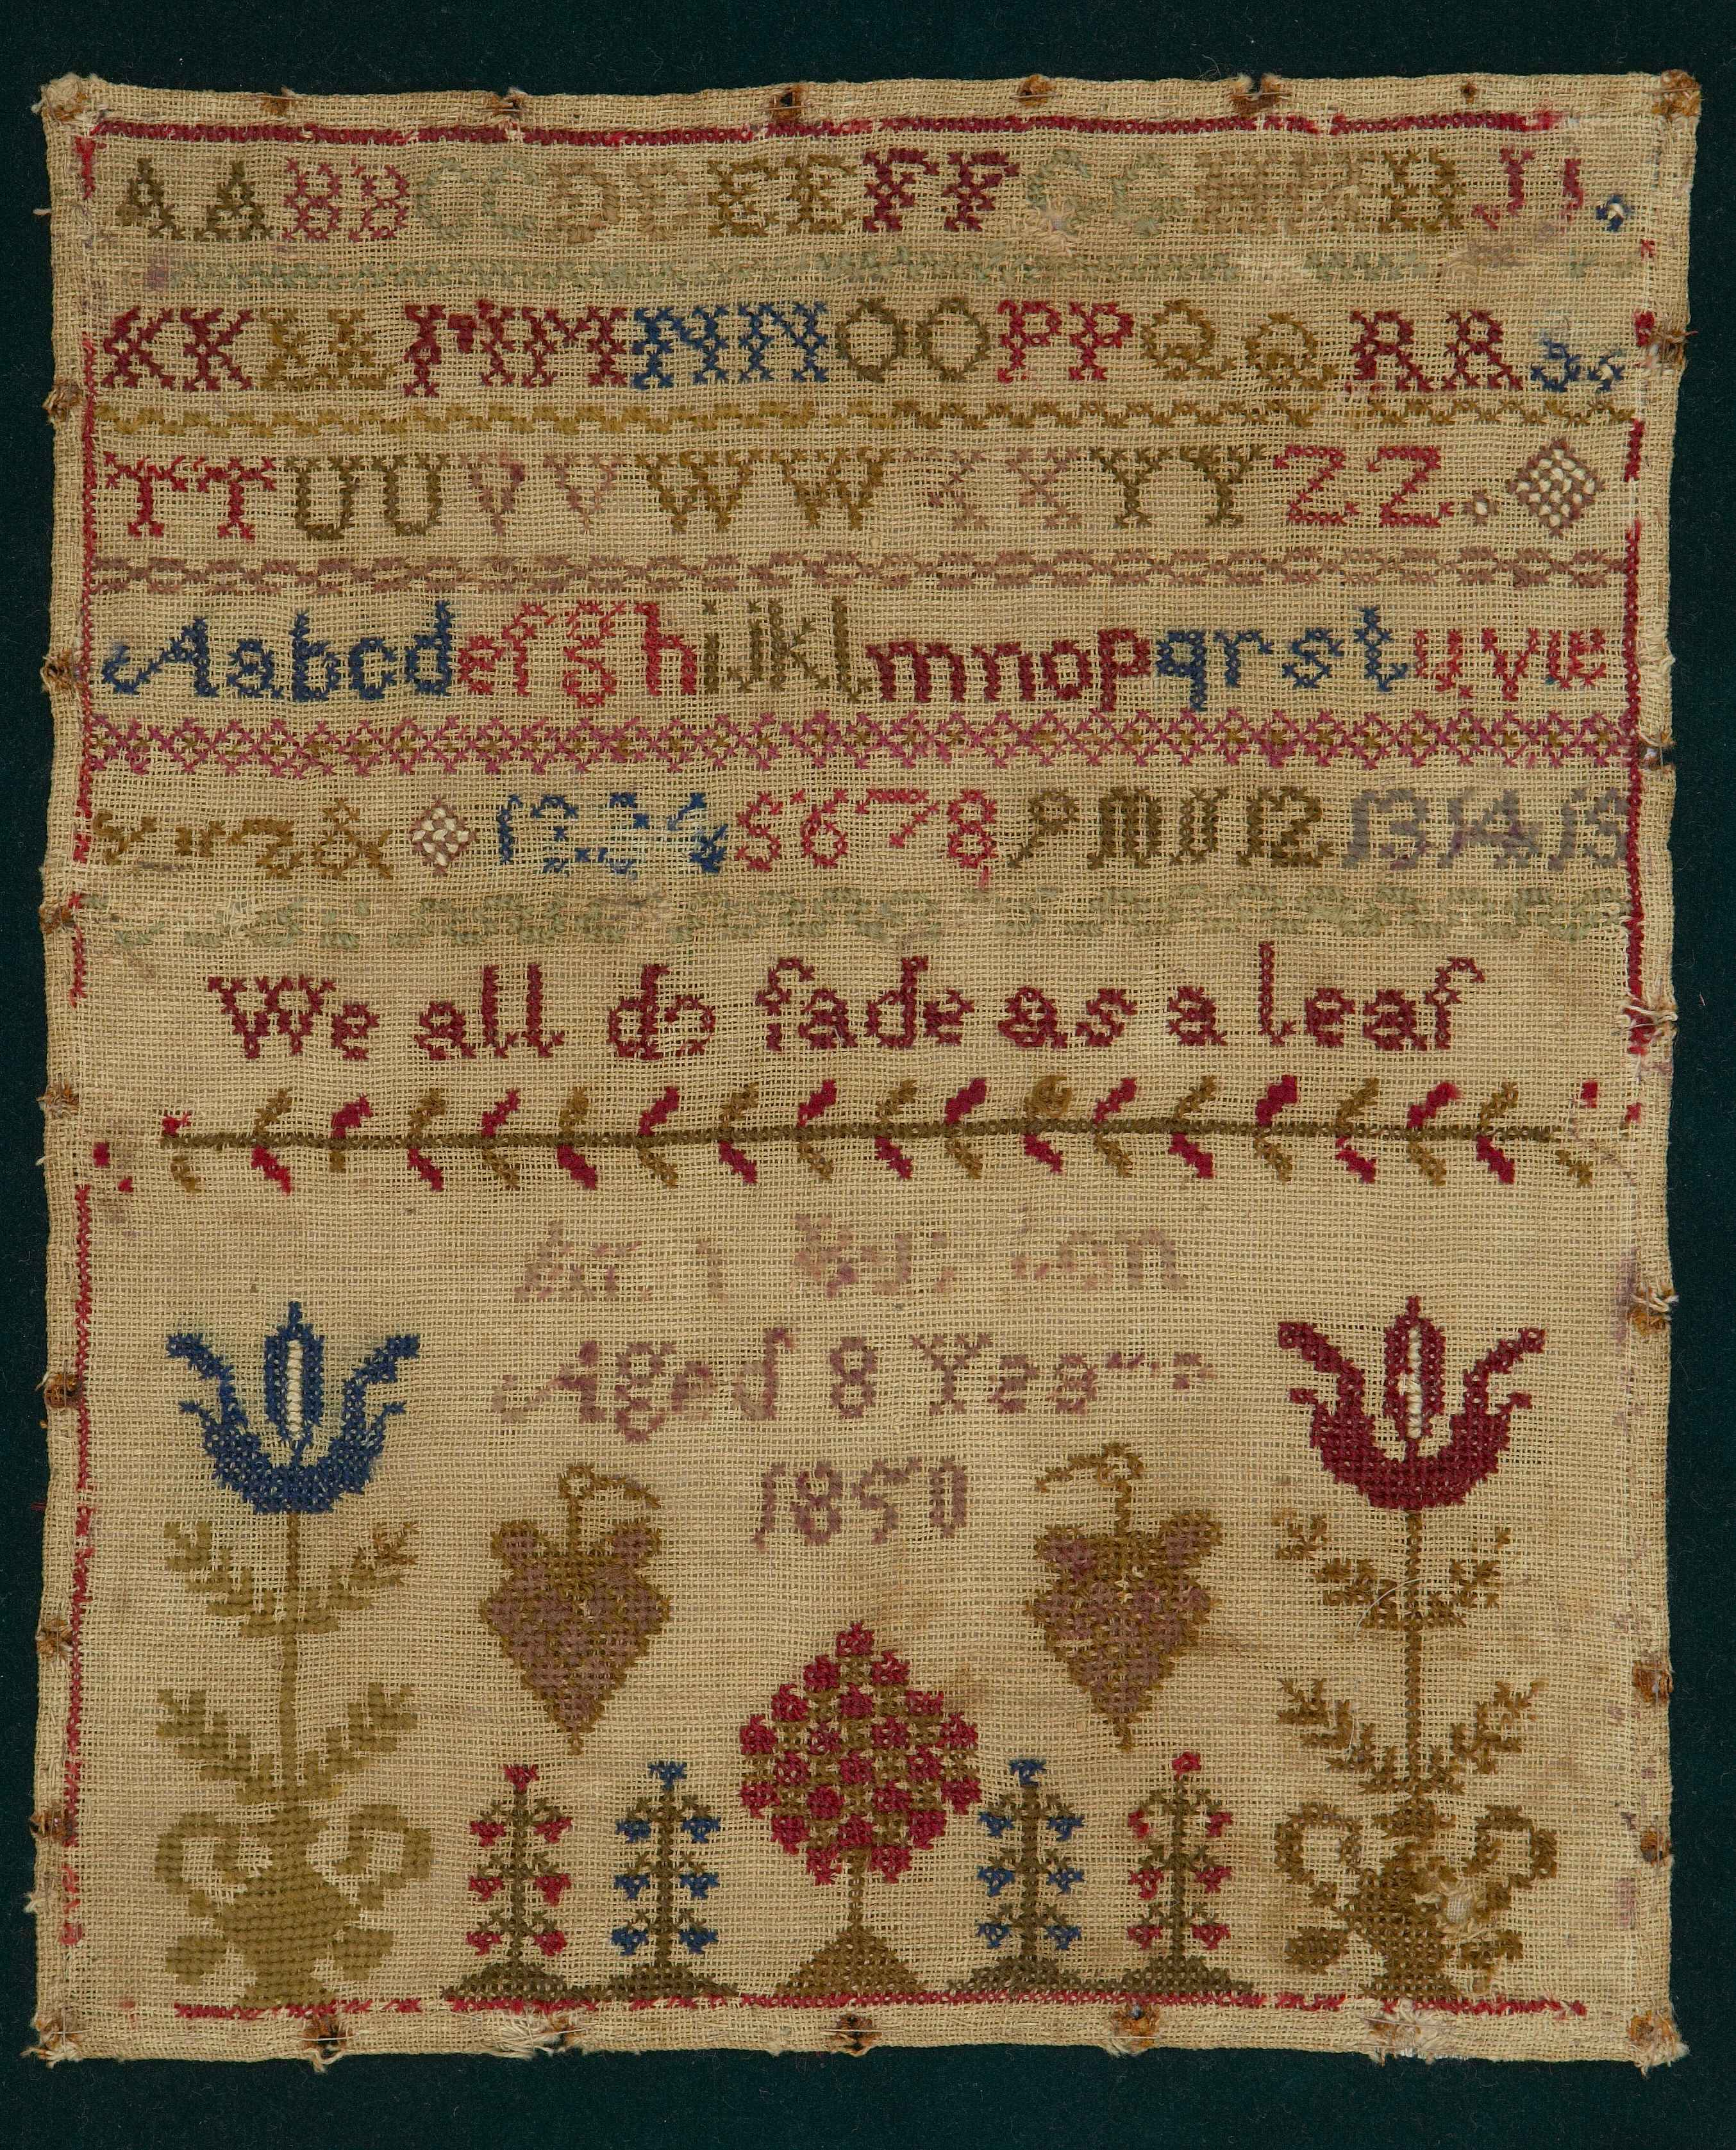 AABBCCDDEEFFGGHHIIJJ
KKLLMMNNOOPPQQRRSS
TTUUVVWWXXYYZZ
Aabcdefghijklmnopqrstuvw
xyz& 1 2 3 4 5 6 7 8 9 10 11 12 13 14 15
We all do fade as a leaf
Aged 8 Years
1850